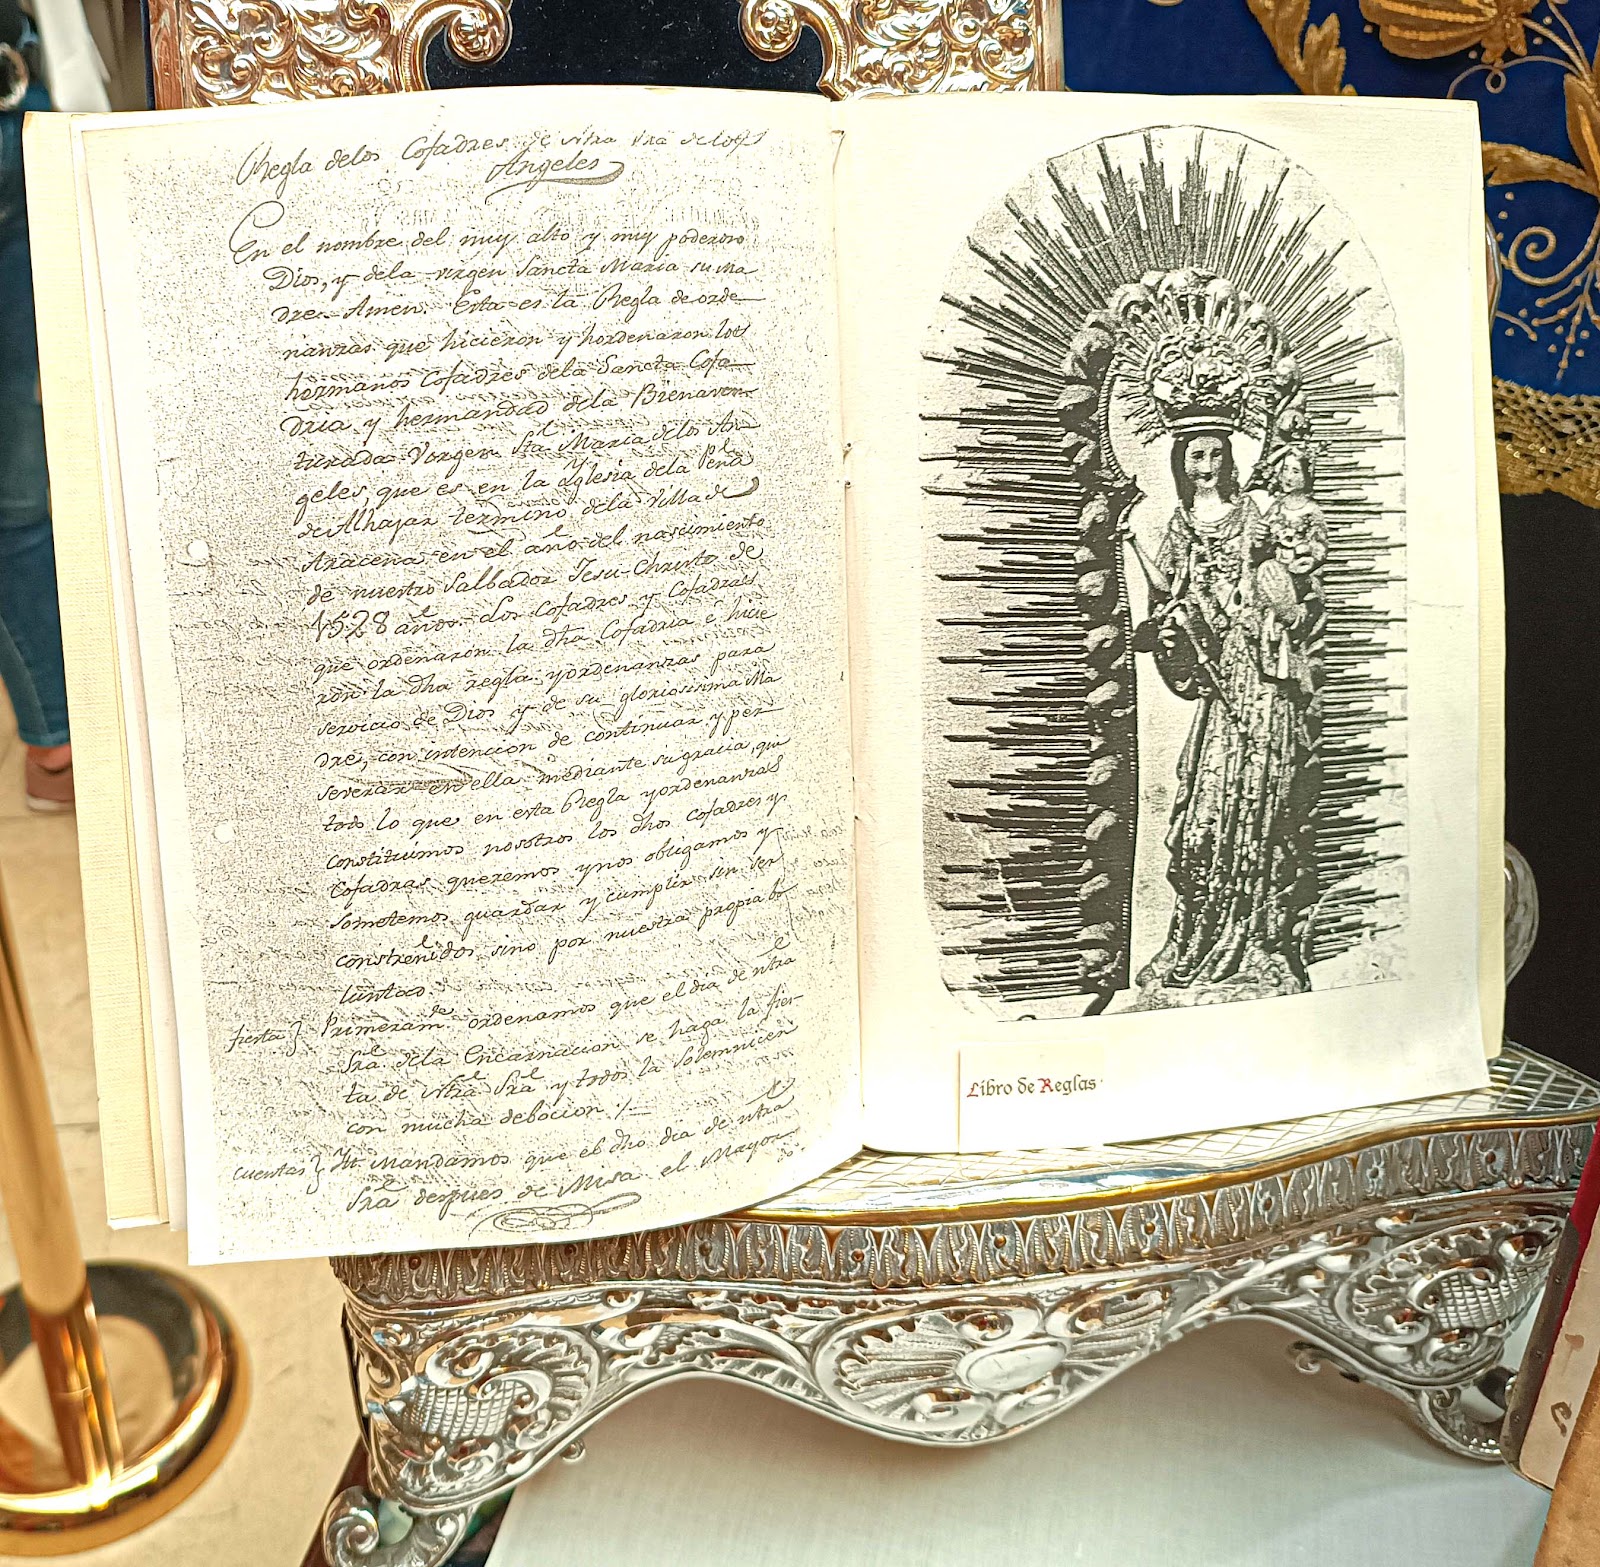 Regla delos Cofadres de ntra sra de los
Angeles
En el nombre del muy alto y muy poderoso
Dios, y dela virgen Sancta Maria su ma
dre. Amen. Esta es la Regla de orde
nanzas que hicieron y hordenaron los
hermanos Cofadres dela Sancta Cofa
dria y hermandad dela Bienaven
turada Vorgen Sra Maria delos An
geles, que es en la Yglesia dela Peña
de Alhajar termino dela Villa de
Aracena en el año del nascimiento
de nuestro Salbador Jesu-Christo de
1528 años. Los Cofadres y Cofadras
que ordenaron la dha Cofadria é hicie
ron la dha regla yordenanzas para
servicio de Dios y de su gloriosissima Ma
dre, con intencion de continuar y per
severar en ella mediante su gracia, que
todo lo que en esta Regla yordenanzas
constituimos nosotros los dhos Cofadres y
Cofadras queremos ynos obligamos y
sometemos guardar y cumplir sin ser
constreñidos sino por nuestra propia bo
luntad.
fiesta} Primeramte ordenamos que el dia de ntra
Sra dela Encarnacion se haga la fies-
ta de ntra Sra y todos la solemnicen
con mucha debocion ./
cuentas} Yt. mandamos que el dho dia de ntra
Sra despues de Missa el Mayor-
do
Libro de Reglas